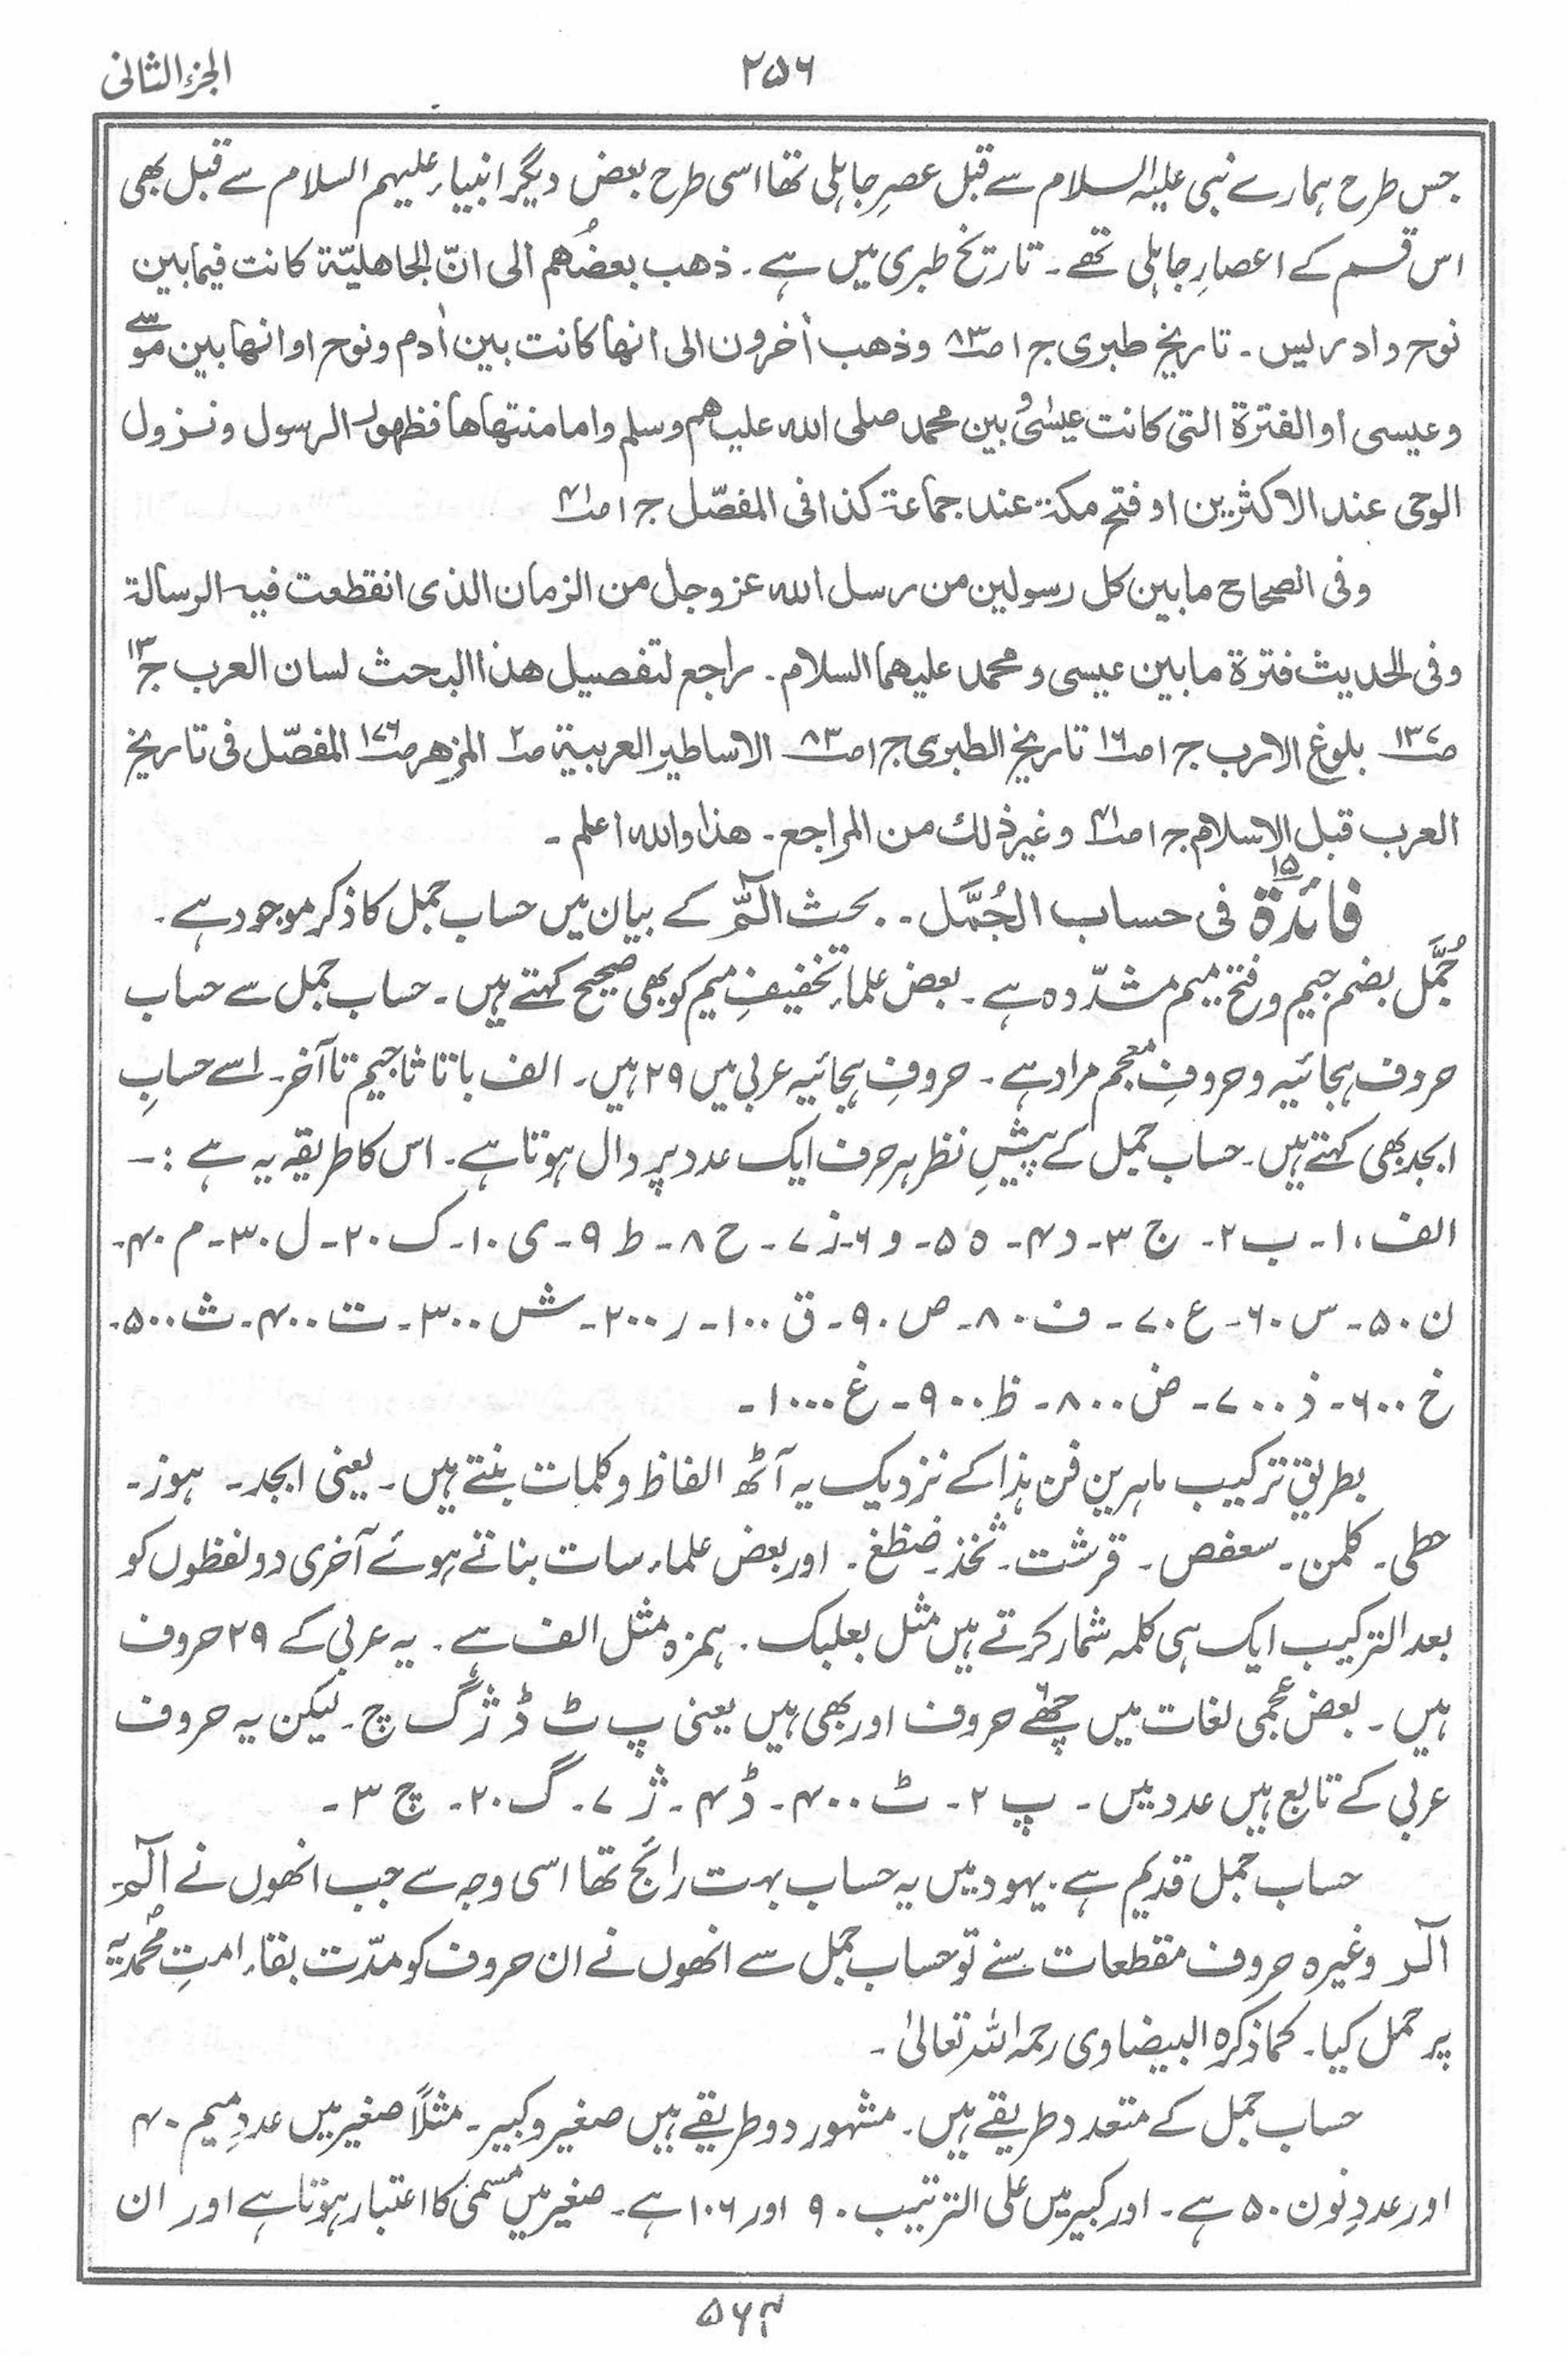 الجزء الثانی
۲۵۶
جس طرح ہمارے نبی علیہ السلام سے قبل عصرِ جاہلی تھا اسی طرح بعض دیگر انبیاء علیہم السلام سے قبل بھی
اس قسم کے اعصارِ جاہلی تھے ۔ تاریخ طبری میں ہے ۔ ذھب بعضُھم الی انّ الجاھلیّۃ کانت فیما بین
نوح و ادریس ۔ تاریخ طبری ج ۱ ص۸۳ وذھب اٰخرون الی انھا کانت بین اٰدم و نوح او انھا بین موسٰی
وعیسی او الفترۃ التی کانت عیسٰی و بین محمد صلی اللہ علیھم وسلم واما منتھاھا فظھور الرسول و نزول
الوحی عند الاکثرین او فتح مکۃ عند جماعۃ کذا فی المفصّل ج ۱ ص۴۱
وفی الصحاح ما بین کل رسولین من رسل اللہ عز وجل من الزمان الذی انقطعت فیہ الرسالۃ
وفی الحدیث فترۃ ما بین عیسی و محمد علیھما السلام ۔ راجع لتفصیل ھذا البحث لسان العرب ج۱۳
ص۱۳۷ بلوغ الارب ج ۱ ص۱۶ تاریخ الطبری ج ۱ ص۸۳ الاساطیر العربیۃ ص۲ المزھر ص۱۷۶ المفصّل فی تاریخ
العرب قبل الاسلام ج ۱ ص۴۱ وغیر ذٰلک من المراجع ۔ ھذا واللہ اعلم ۔
فائدۃ ۱۵ فی حساب الجُمَّل ۔ بحث الٓمّٓ کے بیان میں حساب جمل کا ذکر موجود ہے ۔
جُمَّل بضم جیم و فتح میم مشدّدہ ہے ۔ بعض علماء تخفیفِ میم کو بھی صحیح کہتے ہیں ۔ حساب جمل سے حساب
حروف ہجائیہ و حروفِ معجم مراد ہے ۔ حروفِ ہجائیہ عربی میں ۲۹ ہیں ۔ الف با تا ثا جیم تا آخر ۔ اسے حسابِ
ابجد بھی کہتے ہیں ۔ حساب جمل کے پیشِ نظر ہر حرف ایک عدد پر دال ہوتا ہے ۔ اس کا طریقہ یہ ہے :-
الف ، ۱ - ب ۲ - ج ۳ - د ۴ - ہ ۵ - و ۶ - ز ۷ - ح ۸ - ط ۹ - ی ۱۰ - ک ۲۰ - ل ۳۰ - م ۴۰ -
ن ۵۰ - س ۶۰ - ع ۷۰ - ف ۸۰ - ص ۹۰ - ق ۱۰۰ - ر ۲۰۰ - ش ۳۰۰ - ت ۴۰۰ - ث ۵۰۰ -
خ ۶۰۰ - ذ ۷۰۰ - ض ۸۰۰ - ظ ۹۰۰ - غ ۱۰۰۰ -
بطریقِ ترکیب ماہرین فن ہذا کے نزدیک یہ آٹھ الفاظ و کلمات بنتے ہیں ۔ یعنی ابجد ۔ ہوز ۔
حطی ۔ کلمن ۔ سعفص ۔ قرشت ۔ ثخذ ۔ ضظغ ۔ اور بعض علماء سات بناتے ہوئے آخری دو لفظوں کو
بعد الترکیب ایک ہی کلمہ شمار کرتے ہیں مثل بعلبک ۔ ہمزہ مثل الف ہے ۔ یہ عربی کے ۲۹ حروف
ہیں ۔ بعض عجمی لغات میں چھٹے۶ حروف اور بھی ہیں یعنی پ ٹ ڈ ژ گ چ ۔ لیکن یہ حروف
عربی کے تابع ہیں عدد میں ۔ پ ۲ - ٹ ۴۰۰ - ڈ ۴ - ژ ۷ - گ ۲۰ - چ ۳ -
حساب جمل قدیم ہے ۔ یہود میں یہ حساب بہت رائج تھا اسی وجہ سے جب انھوں نے الٓمٓ
الٓرٰ وغیرہ حروف مقطعات سنے تو حساب جمل سے انھوں نے ان حروف کو مدّت بقاء امتِ محمدیہ
پر حمل کیا ۔ کما ذکرہ البیضاوی رحمہ اللہ تعالیٰ ۔
حساب جمل کے متعدد طریقے ہیں ۔ مشہور دو طریقے ہیں صغیر و کبیر ۔ مثلاً صغیر میں عددِ میم ۴۰
اور عددِ نون ۵۰ ہے ۔ اور کبیر میں علی الترتیب ۹۰ اور ۱۰۶ ہے ۔ صغیر میں مسمی کا اعتبار ہوتا ہے اور ان
۵۶۴